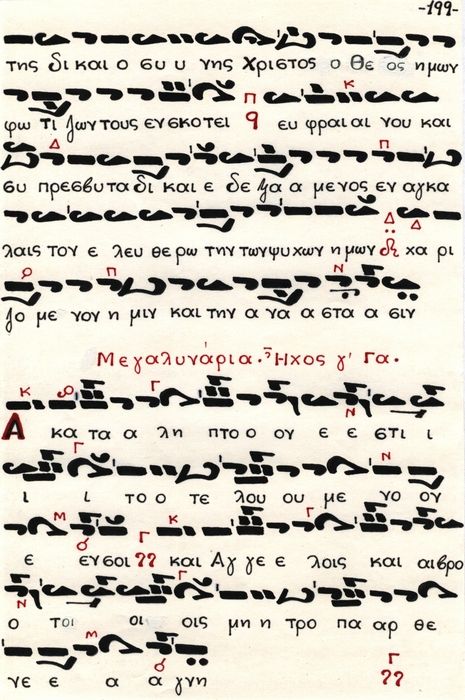 -199-
της δι και ο συ υ νης Χριστος ο Θε ος ημων
φω τι ζων τους εν σκοτει ευ φραι αι νου και
συ πρεσβυτα δι και ε δε ξα α μενος εν αγκα
λαις τον ε λευ θε ρω την των ψυχων ημων χα ρι
ζο με νον η μιν και την α να α στα α σιν
Μεγαλυνάρια. Ἦχος γ' Γα.
Α κα τα α λη πτο ο ον ε ε στι ι
ι ι το ο τε λου ου με νο ον
ε εν σοι και Αγ γε ε λοις και αι βρο
ο τοι οι οις μη η τρο πα αρ θε
νε ε α α γνη